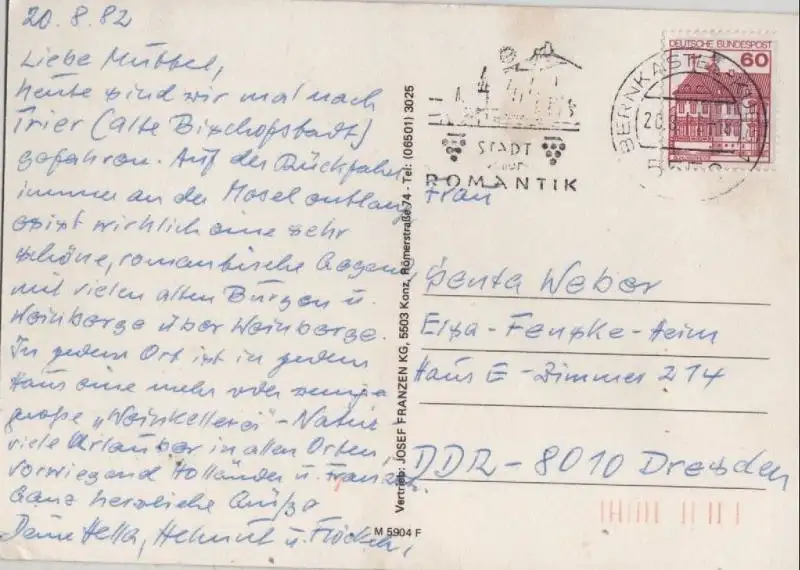 20.8.82
Liebe Muttel,
heute sind wir mal nach
Trier (alte Bischofstadt)
gefahren. Auf der Rückfahrt
immer an der Mosel entlang
es ist wirklich eine sehr
schöne, romantische Gegend
mit vielen alten Burgen u.
Weinberge über Weinberge.
In jedem Ort ist in jedem
Haus eine mehr oder wenige
große "Weinkellerei" - Natür-
viele Urlauber in allen Orten,
vorwiegend Holländer u. Franzos.
Ganz herzliche Grüße
Deine Hella, Helmut u. Flöckch.
Vertrieb: JOSEF FRANZEN KG, 5503 Konz, Römerstraße 74 - Tel: (06501) 3025
M 5904 F
STADT
ROMANTIK
DEUTSCHE BUNDESPOST
60
BERNKASTEL
Frau
Senta Weber
Elsa-Fenske-Heim
Haus E - Zimmer 214
DDR - 8010 Dresden